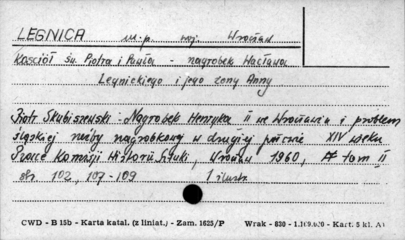 LEGNICA m.p. woj. Wrocław
Kościół św. Piotra i Pawła - nagrobek Wacława
Legnickiego i jego żony Anny
Piotr Skubiszewski: Nagrobek Henryka II we Wrocławiu i problem
śląskiej rzeźby nagrobkowej w drugiej połowie XIV wieku
Prace Komisji Historii Sztuki, Wrocław 1960, tom II
str. 102, 107-109 1 ilustr.
CWD - B 15b - Karta katal. (z liniat.) - Zam. 1625/P Wrak - 830 - Kart. 5 kl. A